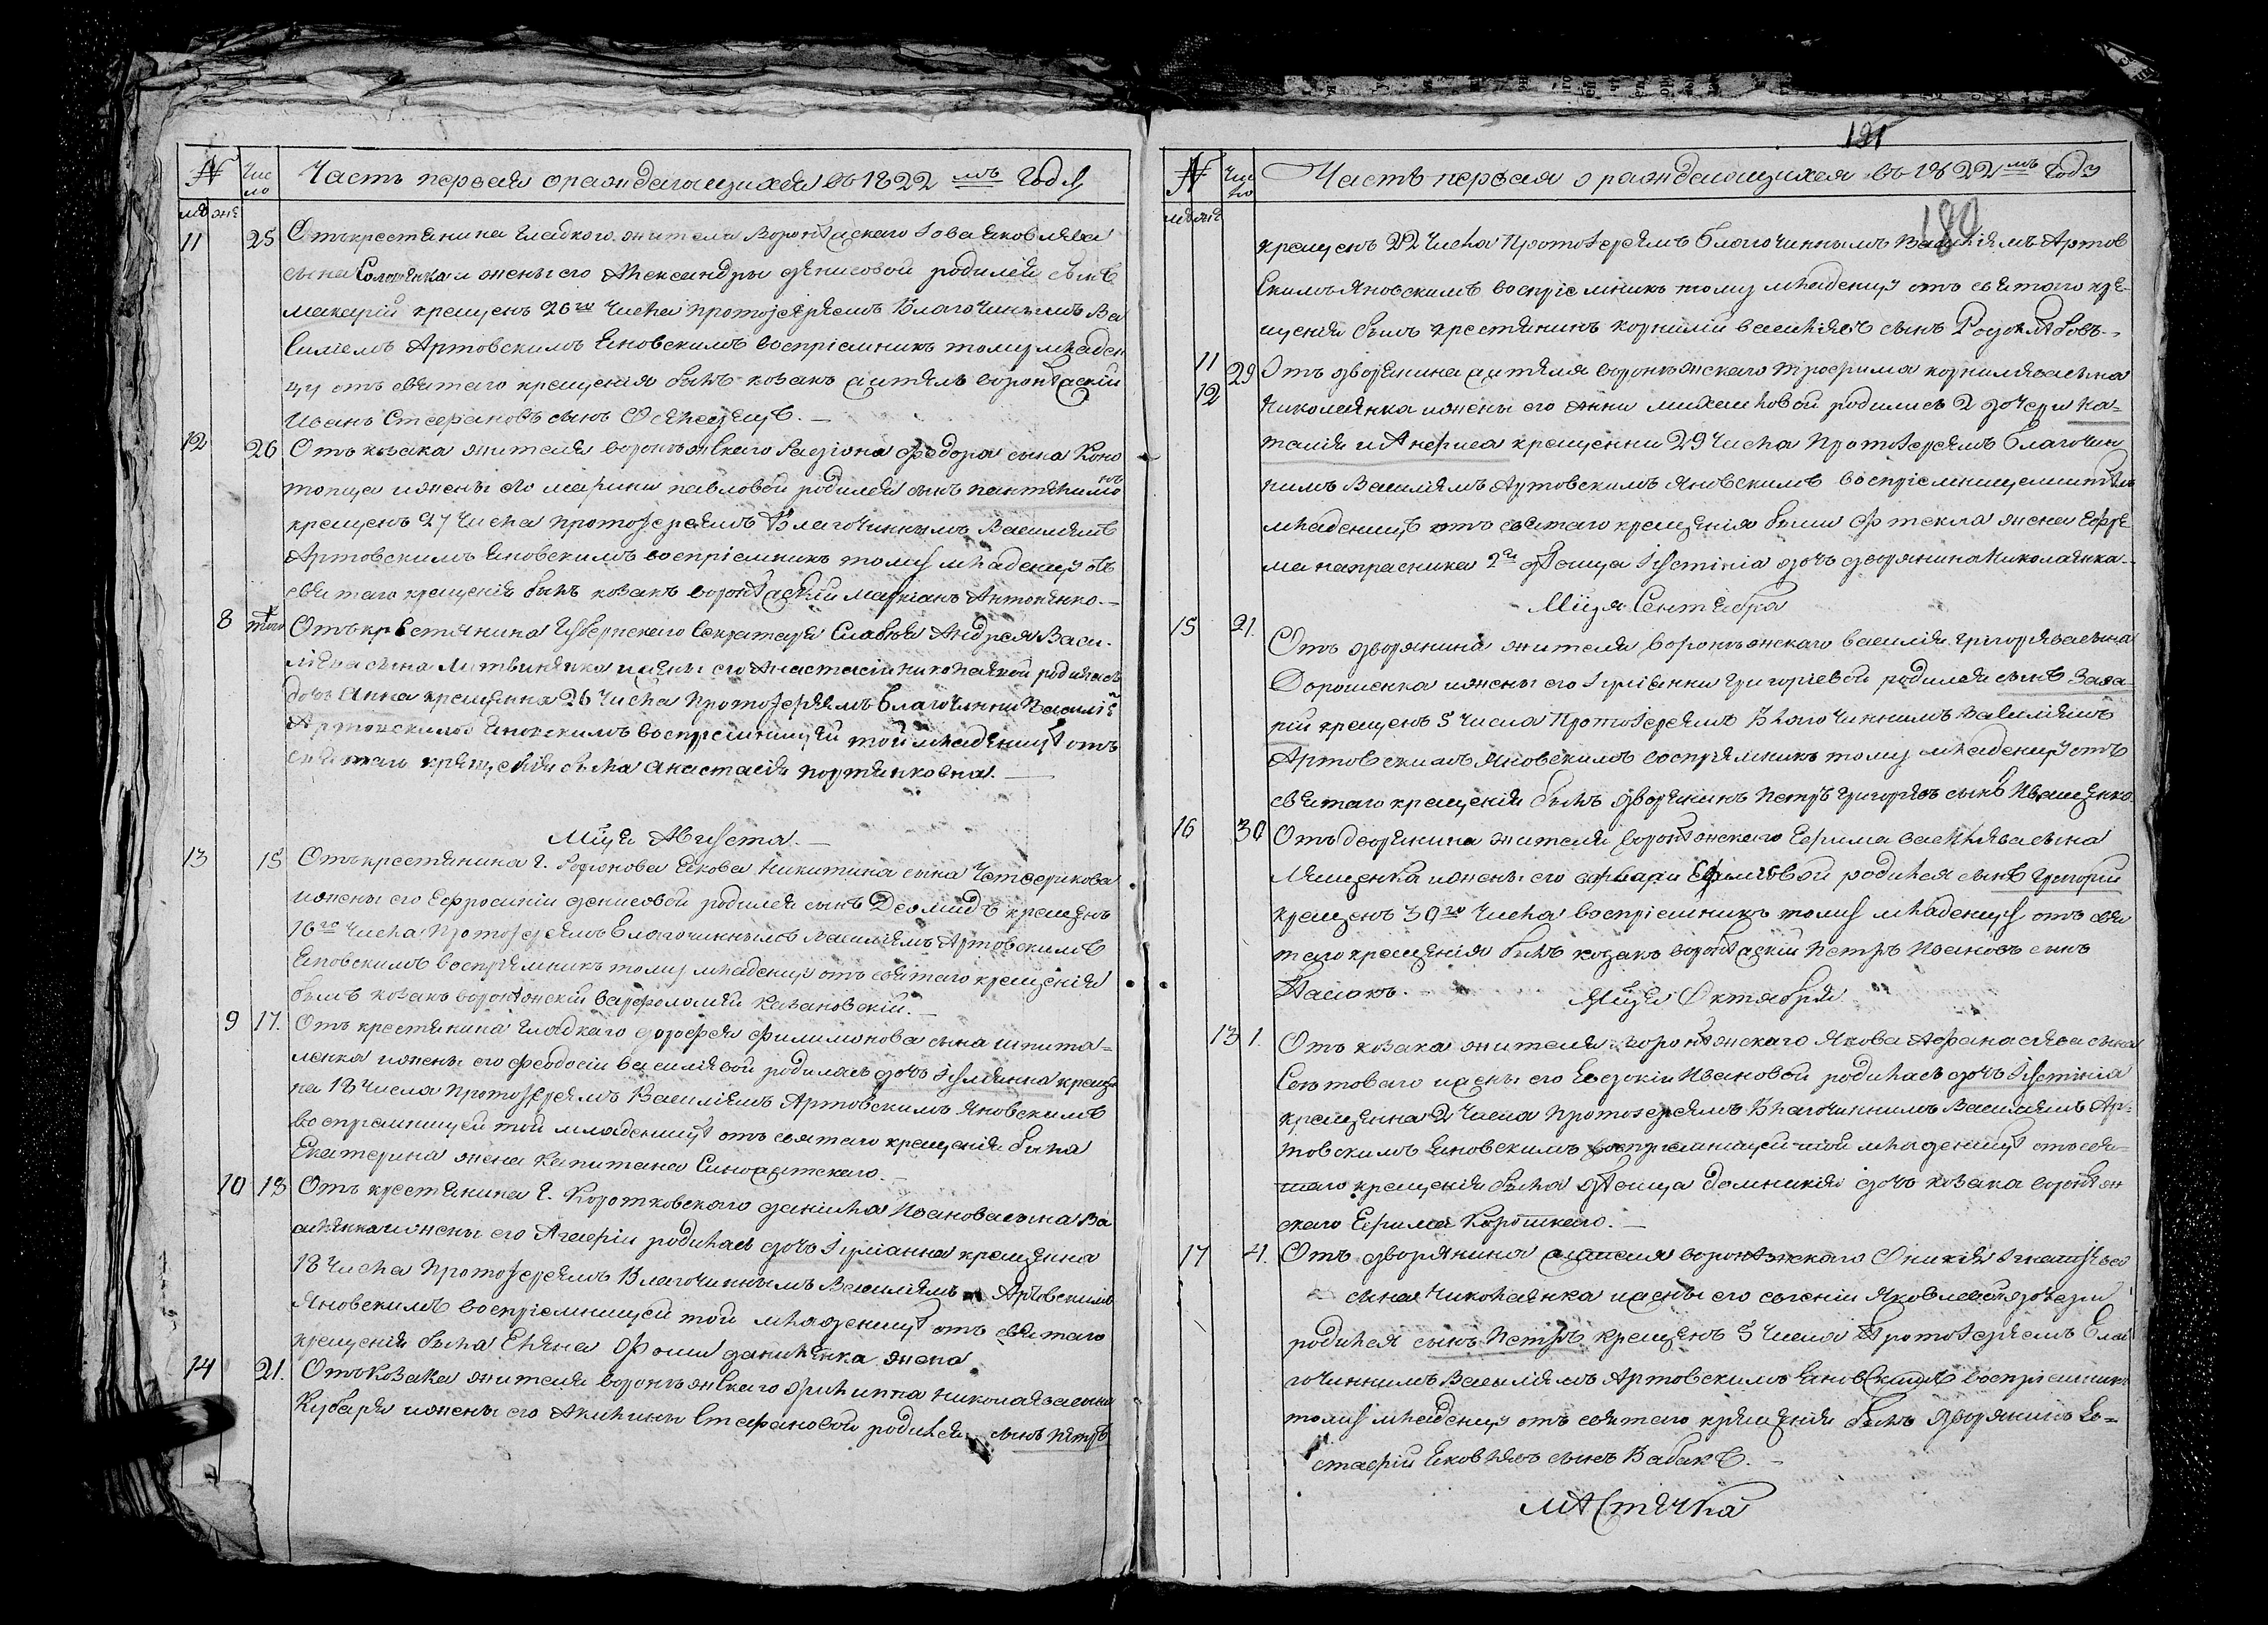 № Число Часть первая о раждающихся въ 1822 мъ Году
11 25 Отъ крестянина Гладкого жителя Воронжскаго Іова Яковлева
сына Соломянка и жены его Александры Денисовой родился сынъ
Макарій крещенъ 26го числа Протоіереемъ Благочинымъ Ва
силіемъ Артовскимъ Яновскимъ воспріемникъ тому младен
цу отъ святаго крещенія былъ козакъ житель воронжскій
Иванъ Стефановъ сынъ
12 26 Отъ козака жителя воронъжскаго Радіона Федора сына Коно
топца и жены его Марины Павловой родился сынъ Пантелимонъ
крещенъ 27 числа Протоіереемъ Благочиннымъ Василіемъ
Артовскимъ Яновскимъ воспріемникъ тому младенцу отъ
святаго крещенія былъ козакъ воронжскій Маркіанъ Антоненко.
8 того Отъ крестянина Губернскаго Секретаря Андрея Васи
лева сына Литвиненка и жены его Анастасіи Николаевой родилась
дочь Анна крещенна 26 числа Протоіереемъ Благочинни Василіе
Артовскимъ Яновскимъ воспріемницей той младеницѣ отъ
святаго крещенія была Анастасія Портянковна.
Мцъя Августа.
13 15 Отъ крестянина Г. Якова Никитина сына Четверикова
и жены его Ефросиніи Денисовой родился сынъ Деомидъ крещенъ
16го числа Протоіереемъ Благочиннымъ Василіемъ Артовскимъ
Яновскимъ воспріемникъ тому младенцу отъ святаго крещенія
былъ козакъ воронжскій Варфоломей Казановскій.
9 17. Отъ крестянина Гладкаго Дорофея Филимонова сына Шпита=
ленка и жены его Феодосіи Василевой родилась дочь Іуліянна креще
на 18 числа Протоіереемъ Василіемъ Артовскимъ Яновскимъ
воспріемницей той младеницѣ отъ святаго крещенія была
Екатерина жена Капитана
10 18 Отъ крестянина Г. Коротковского Данила Иванова сына Ва
и жены его Агафіи родилась дочь Іуліанна крещенна
18 числа Протоіереемъ Благочиннымъ Василіемъ Артовскимъ
Яновскимъ воспріемницей той младеницѣ отъ святаго
крещенія была Елена Фомы Даниленка жена.
14 21. Отъ Козака жителя воронъжскаго Филиппа Николаева сына
Кубаря и жены его Акилины Стефановой родился сынъ Петръ
121
180
№ Число Часть первая о раждающихся въ 1822 мъ Году
крещенъ 22 числа Протоіереемъ благочиннымъ Василіемъ Артов
скимъ Яновскимъ воспріемникъ тому младенцу отъ святого кре=
щенія былъ крестянинъ Корнилій Василіевъ сынъ
11 12 29 Отъ дворянина жителя воронъжскаго Трофима Корнилева сына
Николаенка и жены его Анни Михаиловой родились 2 дочери На=
талія и крещенни 29 числа Протоіереемъ благочин
нимъ Василіемъ Артовскимъ Яновскимъ воспріемницеми
младеницъ отъ святаго крещенія были Фтекла жена Ефре
ма Напрасника 2й дѣвица дочъ дворянина Николаенка.
Мцъя Сентября
15 21. Отъ дворянина жителя воронъжскаго Василія Григорева сына
Дорошенка и жены его Іуліянни Григоріевой родился сынъ Заха
рій крещенъ 5 числа Протоіереемъ Благочиннимъ Василіемъ
Артовскимъ Яновскимъ воспріемникъ тому младенцу отъ
святаго крещенія былъ дворянинъ Петръ Григоревъ сынъ Иващенко.
16 30 Отъ дворянина жителя воронѣжскаго Ефима Василева сына
и жены его Варвари родился сынъ Григорій
крещенъ 30го числа воспріемникъ тому младенцу отъ свя
таго крещенія былъ козакъ воронѣжскій Петръ Ивановъ сынъ
Пасюкъ.
Мцъя Октября
13 1. Отъ козака жителя воронѣжскаго Якова Афанасева сына
и жены его Евдокіи Ивановой родилась дочъ
крещенна 2 числа Протоіереемъ Благочиннимъ Василіемъ Ар=
товскимъ Яновскимъ воспріемницей той младеницѣ отъ свя=
таго крещенія была дѣвица Домникія дочъ козака воронѣж
скаго Ефима
17 4. Отъ дворянина жителя воронѣжскаго Игнатіева
сына Николаенка и жены его Яковлевой
родился сынъ Петръ крещенъ 5 числа Протоіереемъ Благ
очиннимъ Василіемъ Артовскимъ Яновскимъ воспріемникъ
тому младенцу отъ святаго крещенія былъ дворянинъ Ев=
стафій Яковлевъ сынъ Бабакъ.